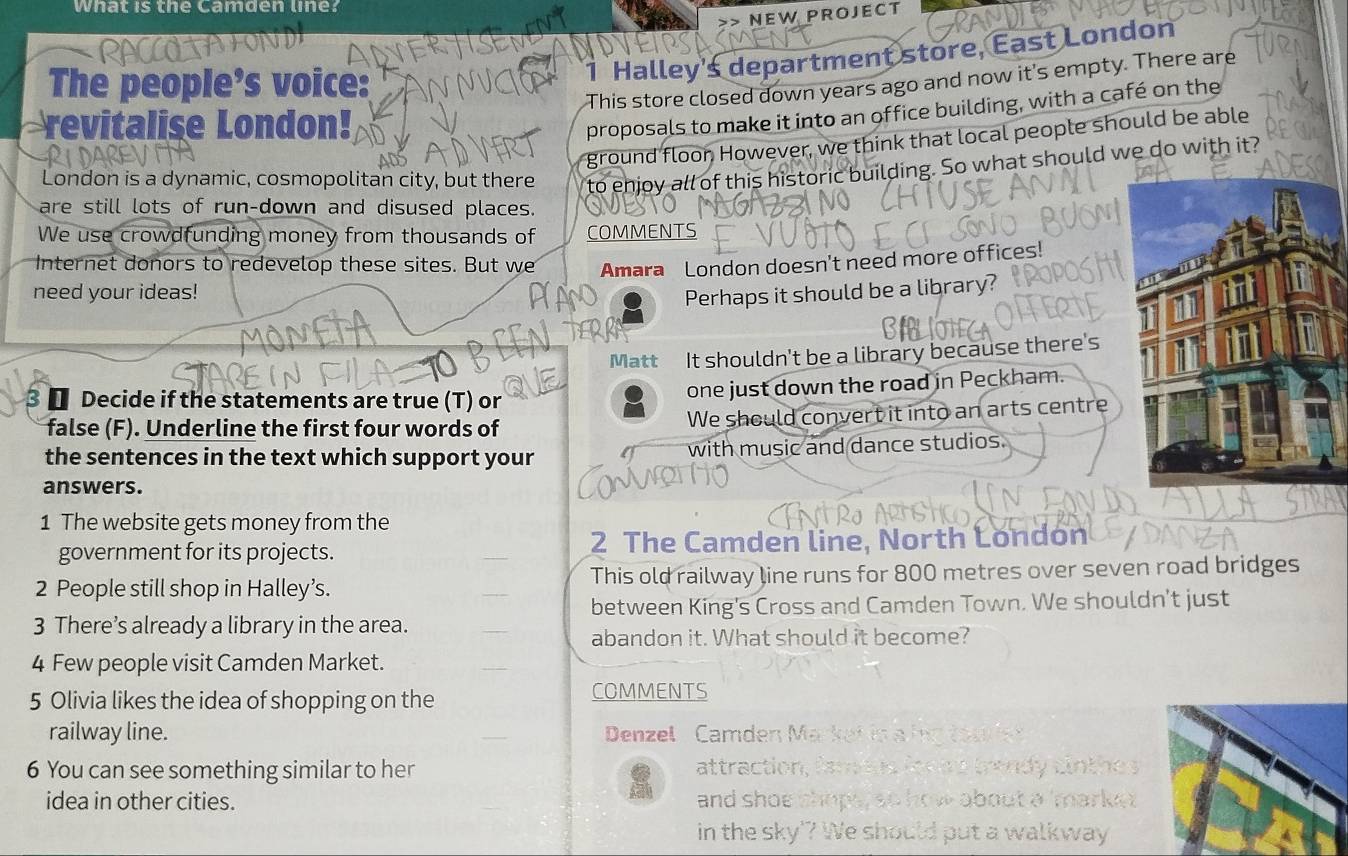 What is the Camden line?
>> NEW PROJECT
RACCOLTA FONDI
ADVERTISEMENT
The people's voice:
revitalise London!
ANNUCIO
AD
ADS
ADVERT
RIDAREVITA
London is a dynamic, cosmopolitan city, but there
are still lots of run-down and disused places.
We use crowdfunding money from thousands of
Internet donors to redevelop these sites. But we
need your ideas!
MONETA
PIANO
TERRA
STARE IN FILA = TO BEEN
QUE
3 1 Decide if the statements are true (T) or
false (F). Underline the first four words of
the sentences in the text which support your
answers.
1 The website gets money from the
government for its projects.
2 People still shop in Halley's.
3 There's already a library in the area.
4 Few people visit Camden Market.
5 Olivia likes the idea of shopping on the
railway line.
6 You can see something similar to her
idea in other cities.
1 Halley's department store, East London
This store closed down years ago and now it's empty. There are
proposals to make it into an office building, with a café on the
ground floor. However, we think that local people should be able
COMUNQUE
to enjoy all of this historic building. So what should we do with it?
QUESTO MAGAZZINO CHIUSE ANNI
ADESSO
COMMENTS
E VUOTO E CI SONO BUONI
Amara London doesn't need more offices!
Perhaps it should be a library?
PROPOSITI
OFFERTE
BIBLIOTECA
Matt It shouldn't be a library because there's
one just down the road in Peckham.
We should convert it into an arts centre
with music and dance studios.
CONVERTITO
IN FONDO ALLA STRA
CENTRO ARTISTICO
CULTURALE/DANZA
2 The Camden line, North London
This old railway line runs for 800 metres over seven road bridges
between King's Cross and Camden Town. We shouldn't just
abandon it. What should it become?
COMMENTS
Denzel Camden Market is a big tourist
attraction, famous for its trendy clothes
and shoe shops, so how about a 'market
in the sky'? We should put a walkway
CA